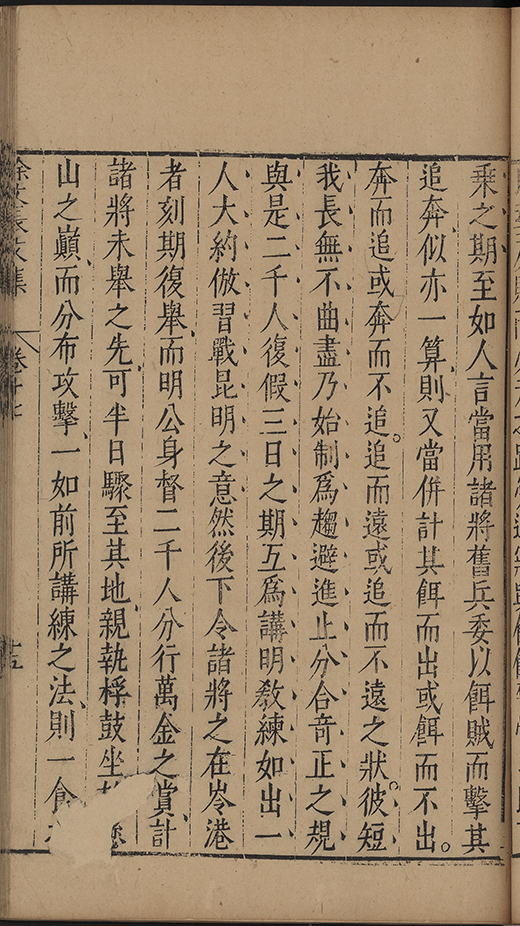 乘之期至如人言當用諸將舊兵委以餌賊而擊其
追奔似亦一算則又當併計其餌而出或餌而不出。
奔而追或奔而不追。追而遠或追而不遠之狀。彼短
我長無不曲盡乃始制爲趨避進止分合奇正之規
與是二千人復假三日之期互爲講明教練如出一
人大約倣習戰昆明之意然後下令諸將之在岑港
者刻期復舉、而明公身督二千人分行萬金之賞、計
諸將未舉之先、可半日驟至其地、親執桴鼓坐
山之巔、而分布攻擊、一如前所講練之法、則一食
徐文長文集
卷十七
十五